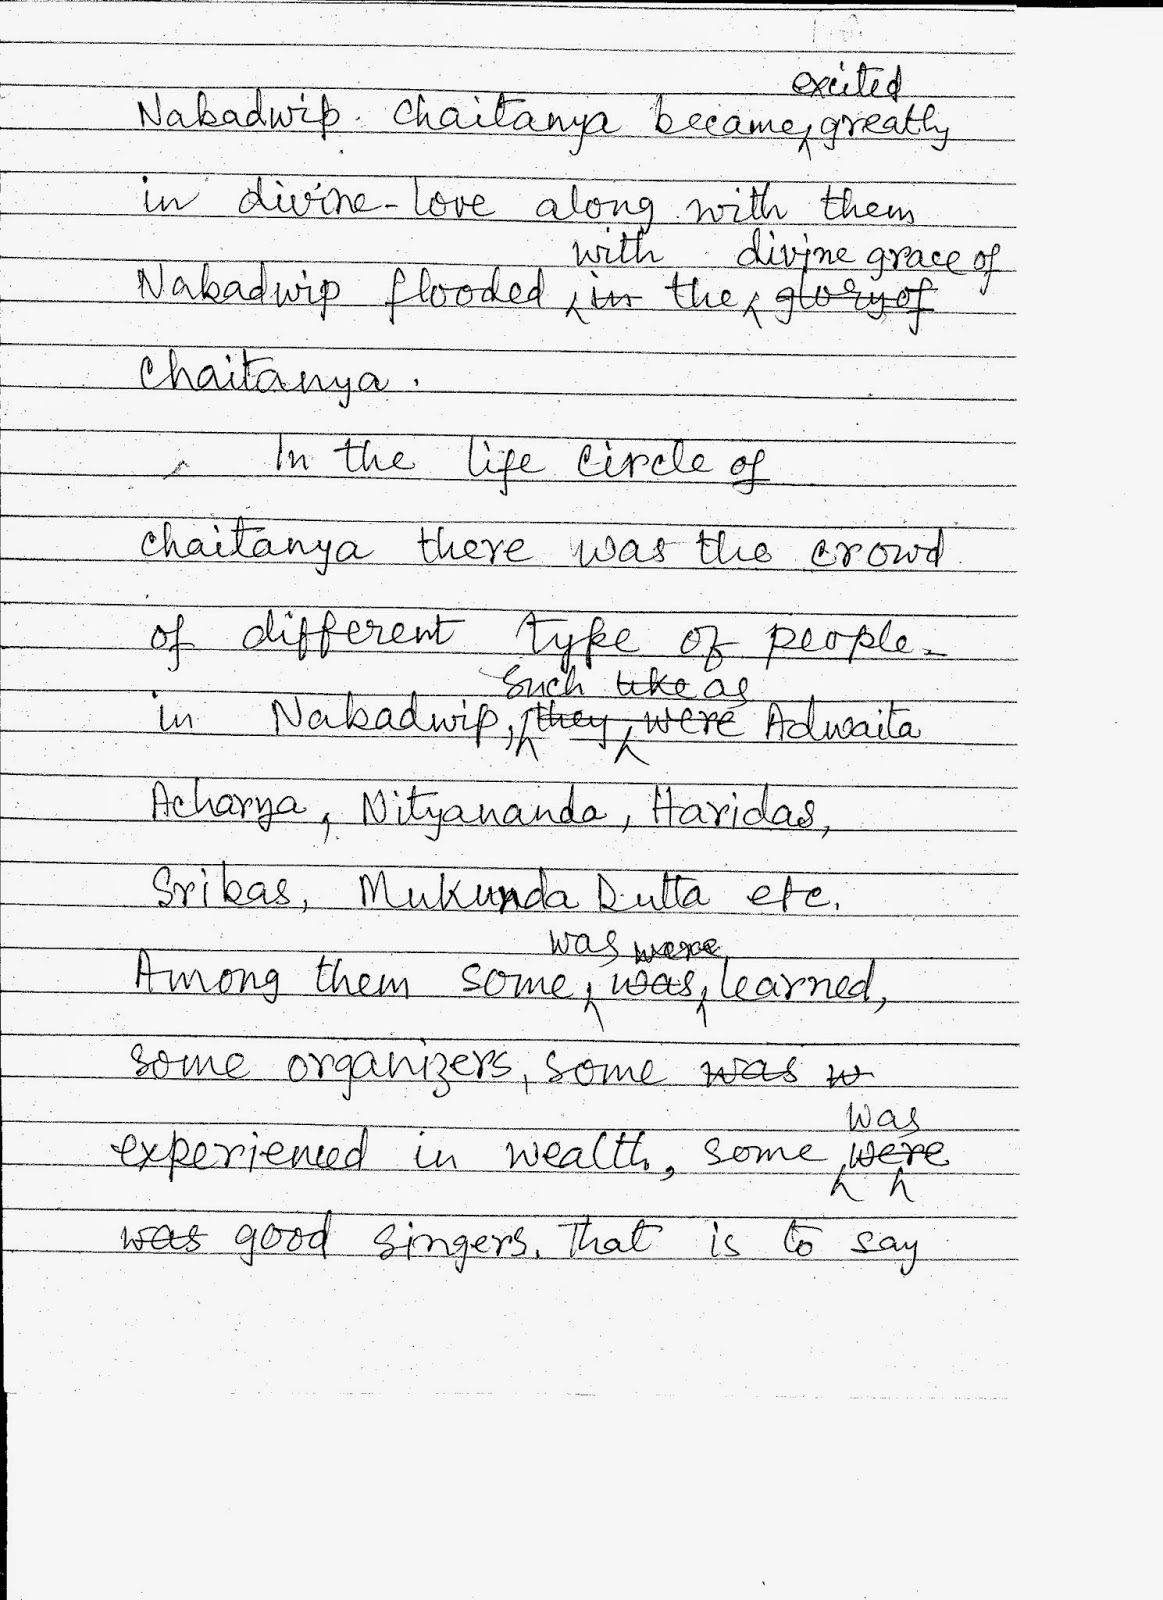 excited
Nabadwip. Chaitanya became greatly
in divine-love along with them
with divine grace of
Nabadwip flooded in the glory of
Chaitanya.
In the life circle of
Chaitanya there was the crowd
of different type of people-
Such like as
in Nabadwip, they were Adwaita
Acharya, Nityananda, Haridas,
Sribas, Mukunda Dutta etc.
was were
Among them some, was, learned,
some organizers, some was w
was
experienced in wealth, some were
was good singers. That is to say